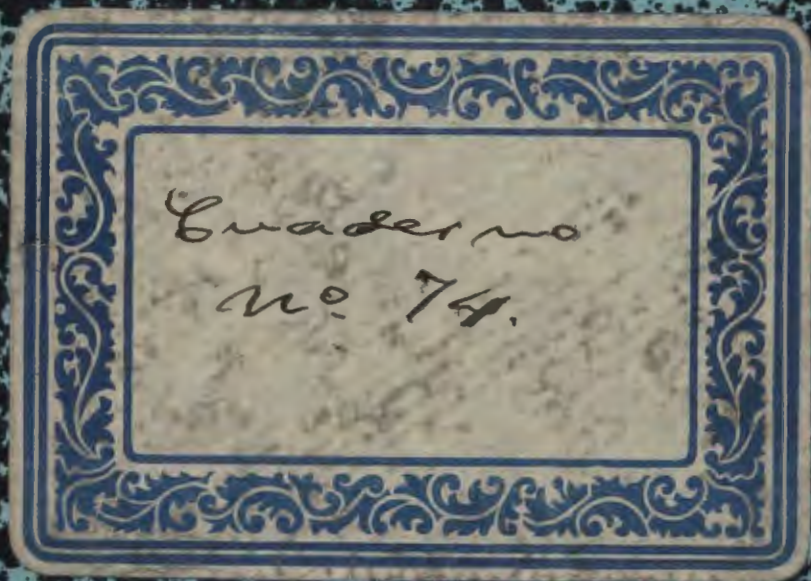 Cuaderno
nº 74.